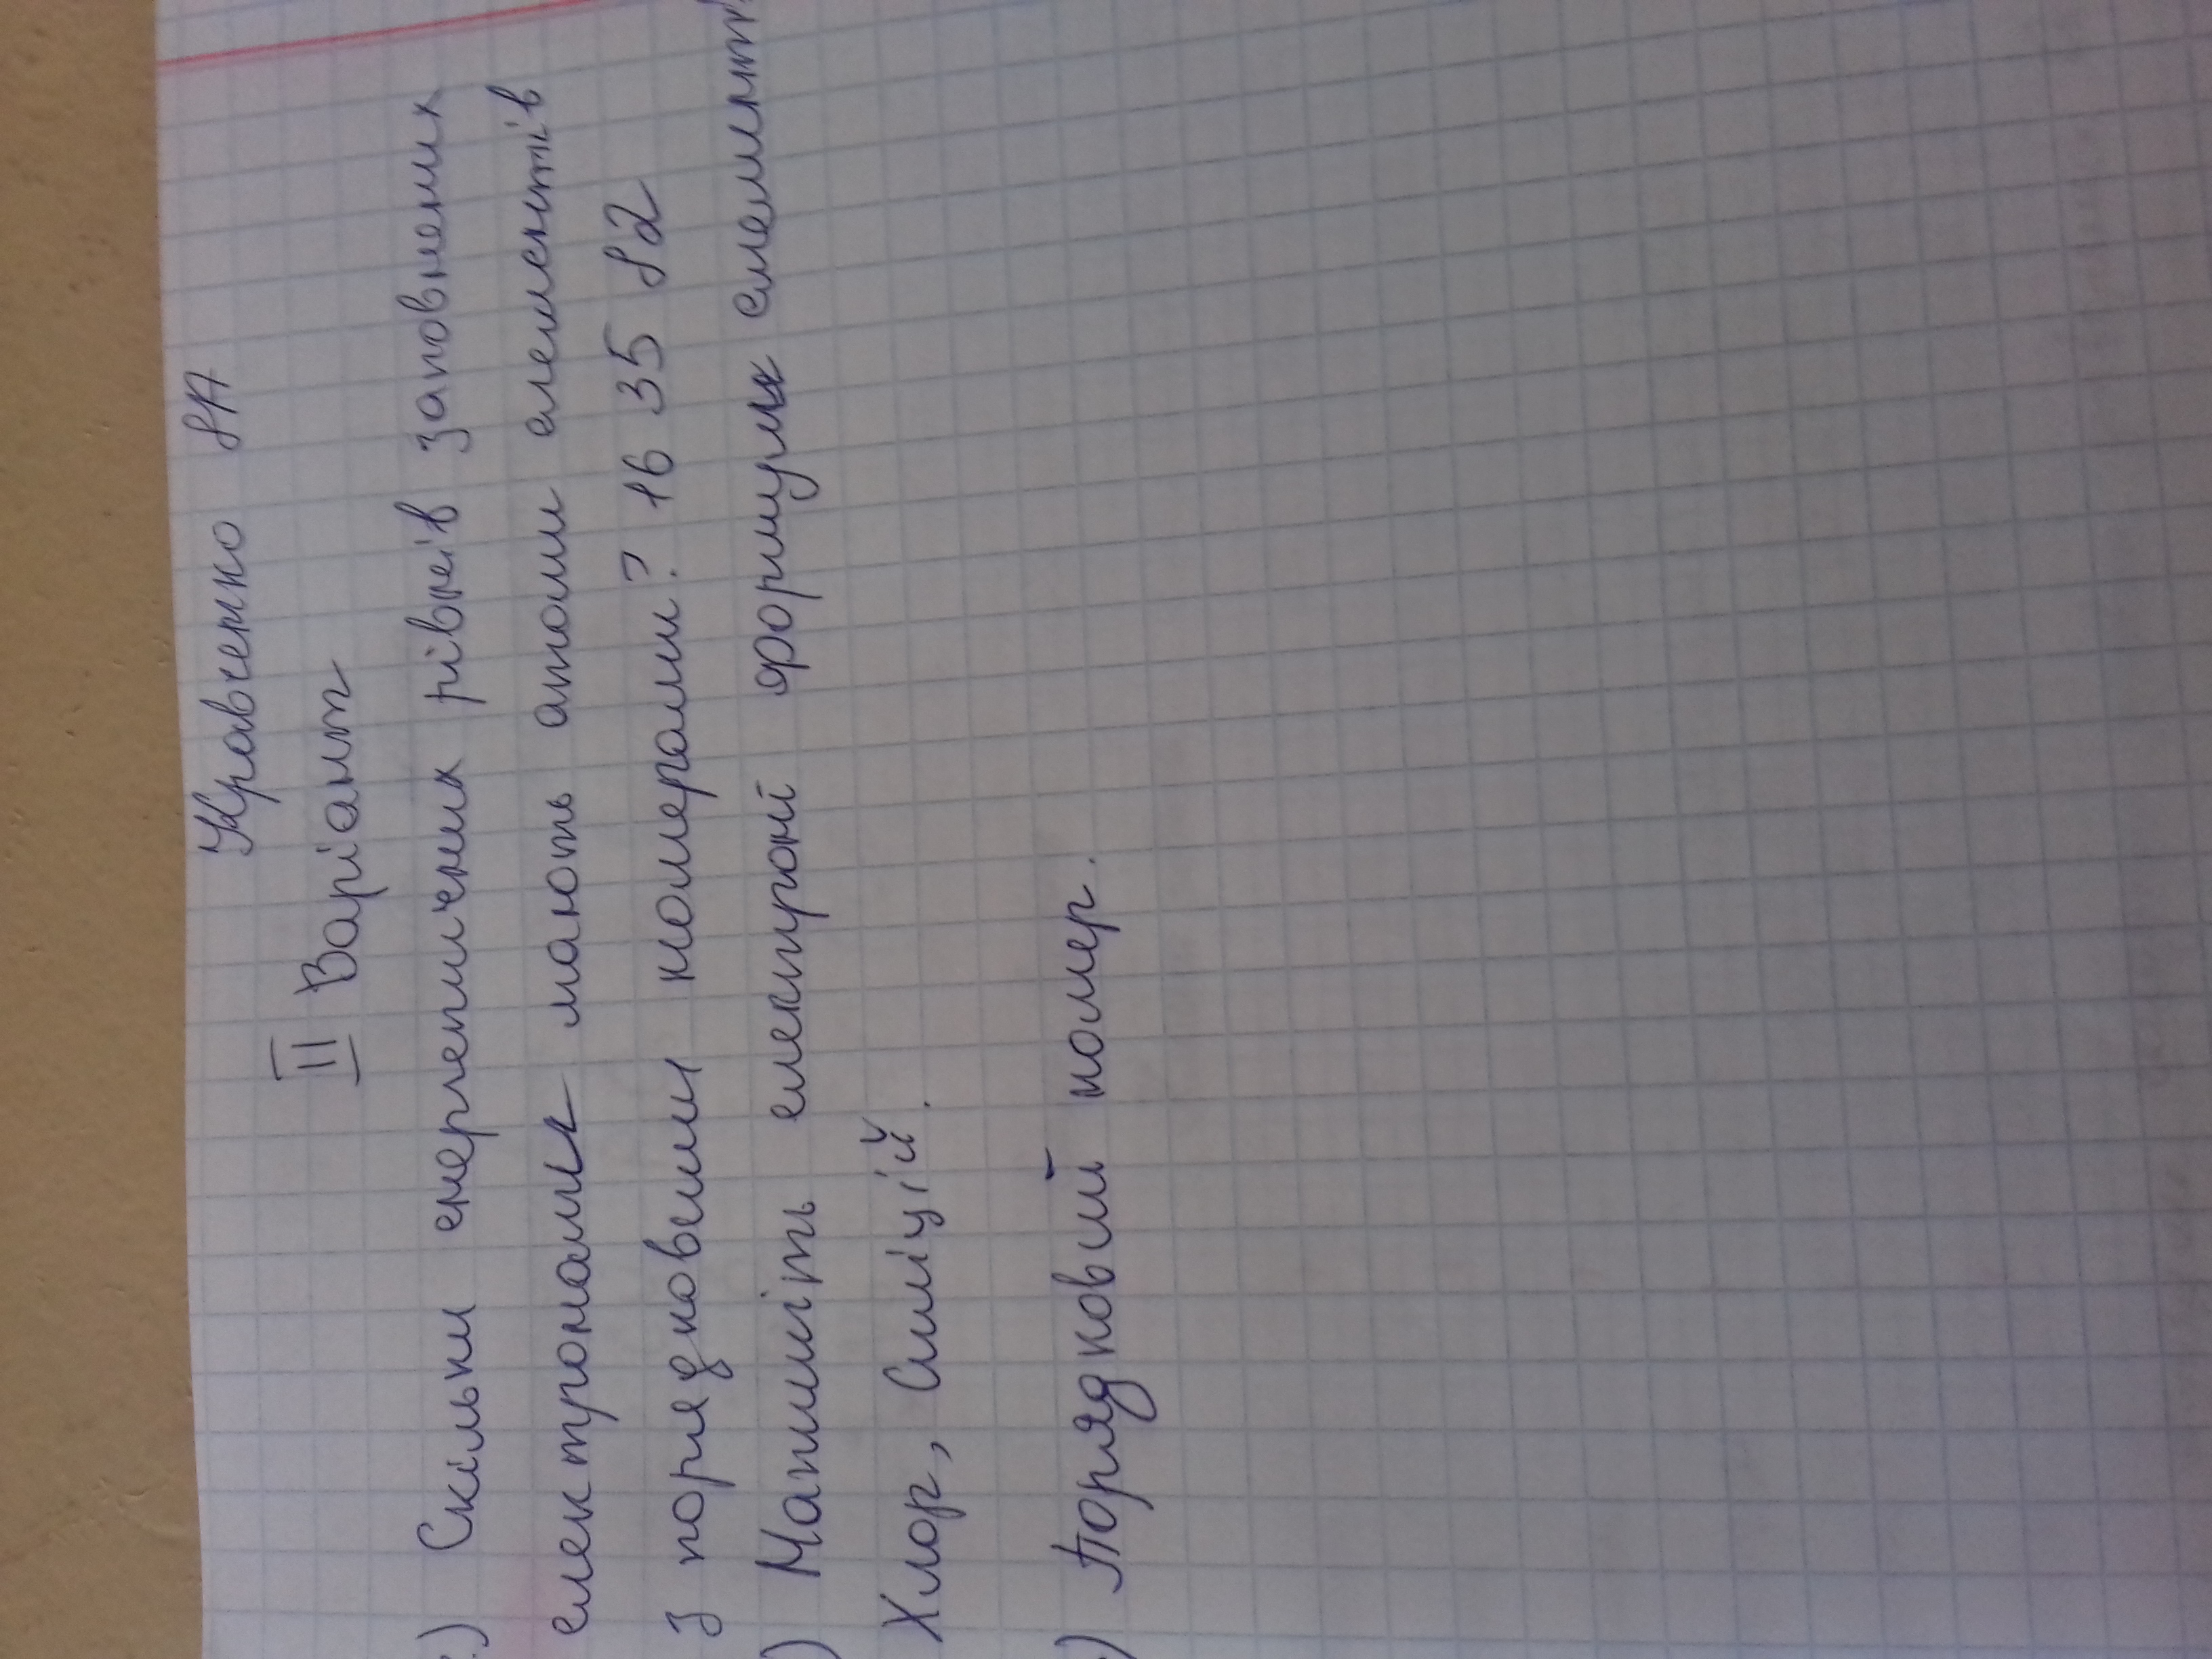 Кравченко 8А
II Варіант
) Скільки енергетичних рівнів заповнених
електронами мають атоми елементів
з порядковими номерами? 16 35 82
) Напишіть електроні формули елемент
Хлор, Силіцій.
) Порядковий номер.